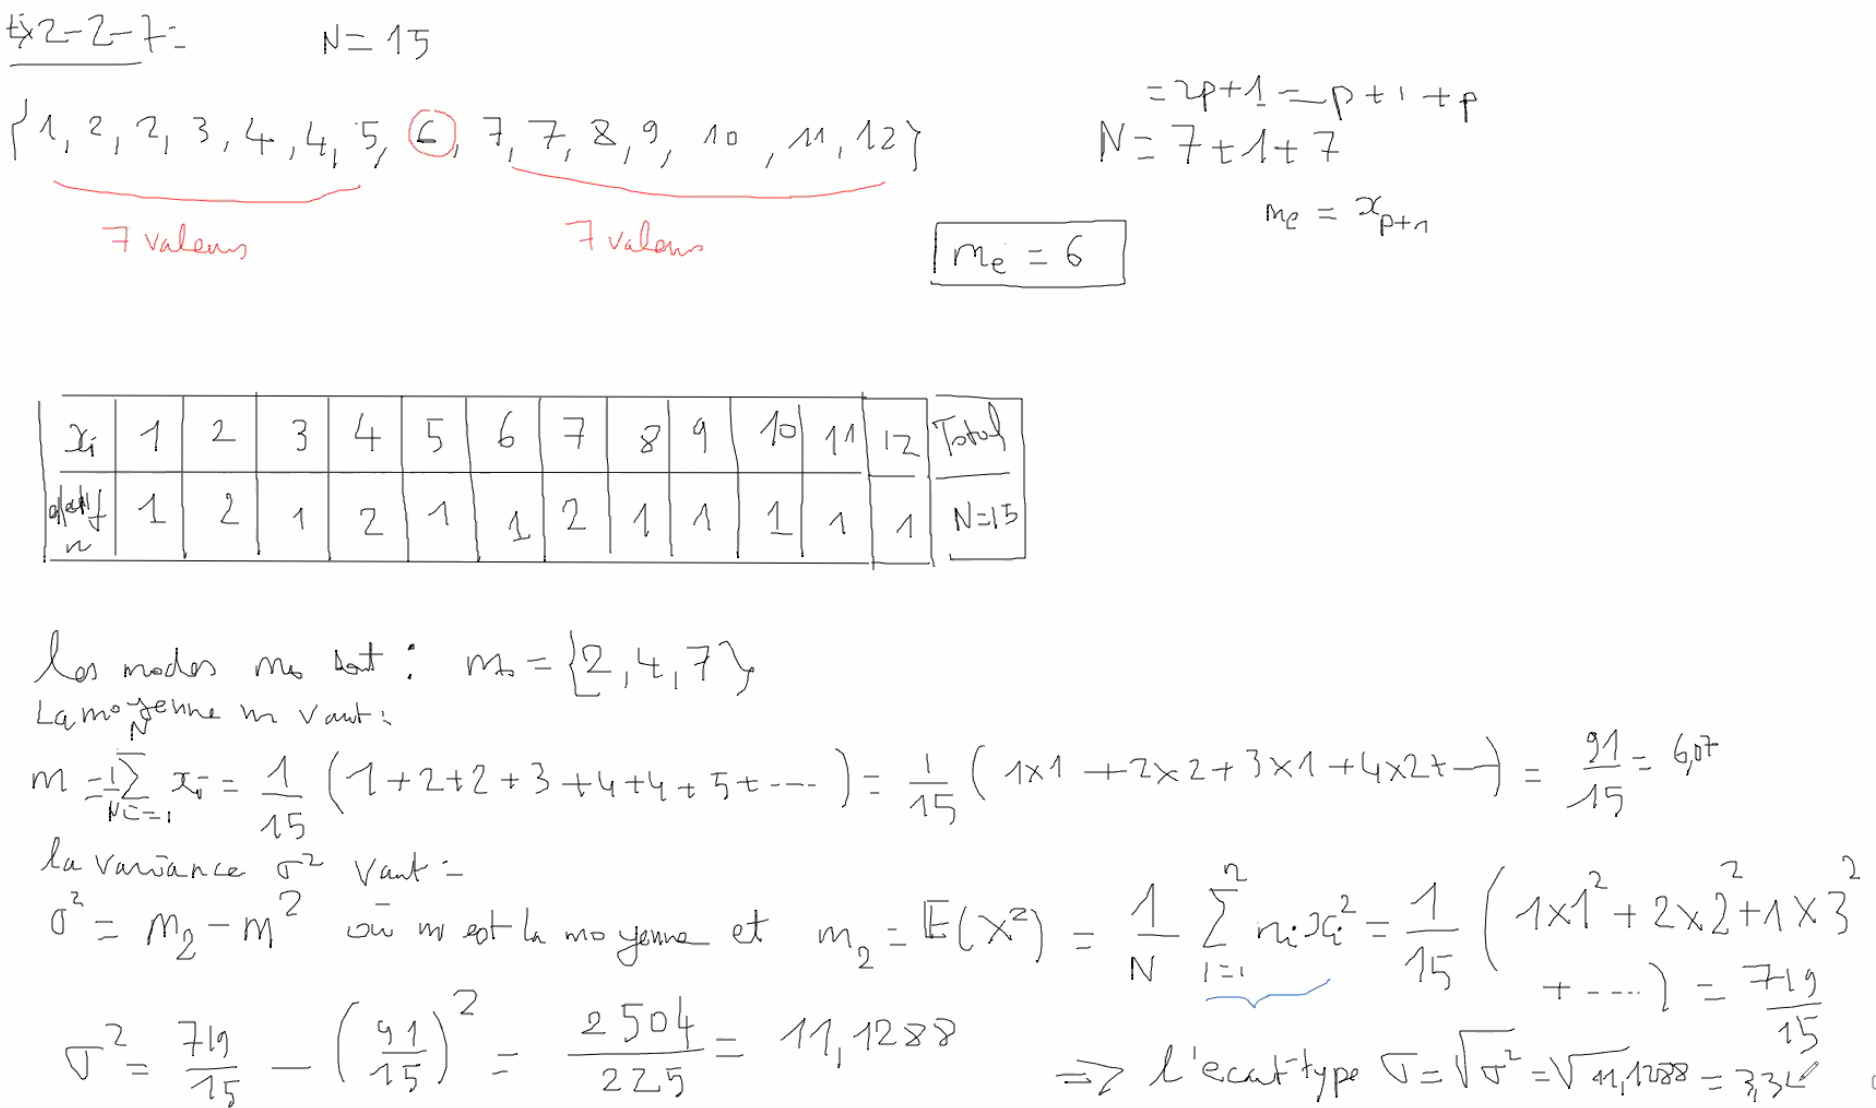 Ex 2-2-7: N = 15
= 2p+1 = p+1+p
{1, 2, 2, 3, 4, 4, 5, 6, 7, 7, 8, 9, 10, 11, 12}
N = 7+1+7
7 valeurs 7 valeurs
me = x_{p+1}
me = 6
xi 1 2 3 4 5 6 7 8 9 10 11 12 Total
effectif n 1 2 1 2 1 1 2 1 1 1 1 1 N=15
les modes mo sont : mo = {2, 4, 7}
La moyenne m vaut :
m = 1/N ∑_{i=1}^{N} xi = 1/15 (1+2+2+3+4+4+5+....) = 1/15 (1×1 + 2×2 + 3×1 + 4×2 + ...) = 91/15 = 6,07
la variance σ² vaut :
σ² = m₂ - m² où m est la moyenne et m₂ = E(X²) = 1/N ∑_{i=1}^{n} ni xi² = 1/15 (1×1² + 2×2² + 1×3²
+ ....) = 719/15
σ² = 719/15 - (91/15)² = 2504/225 = 11,1288
=> l'écart-type σ = √σ² = √11,1288 = 3,34